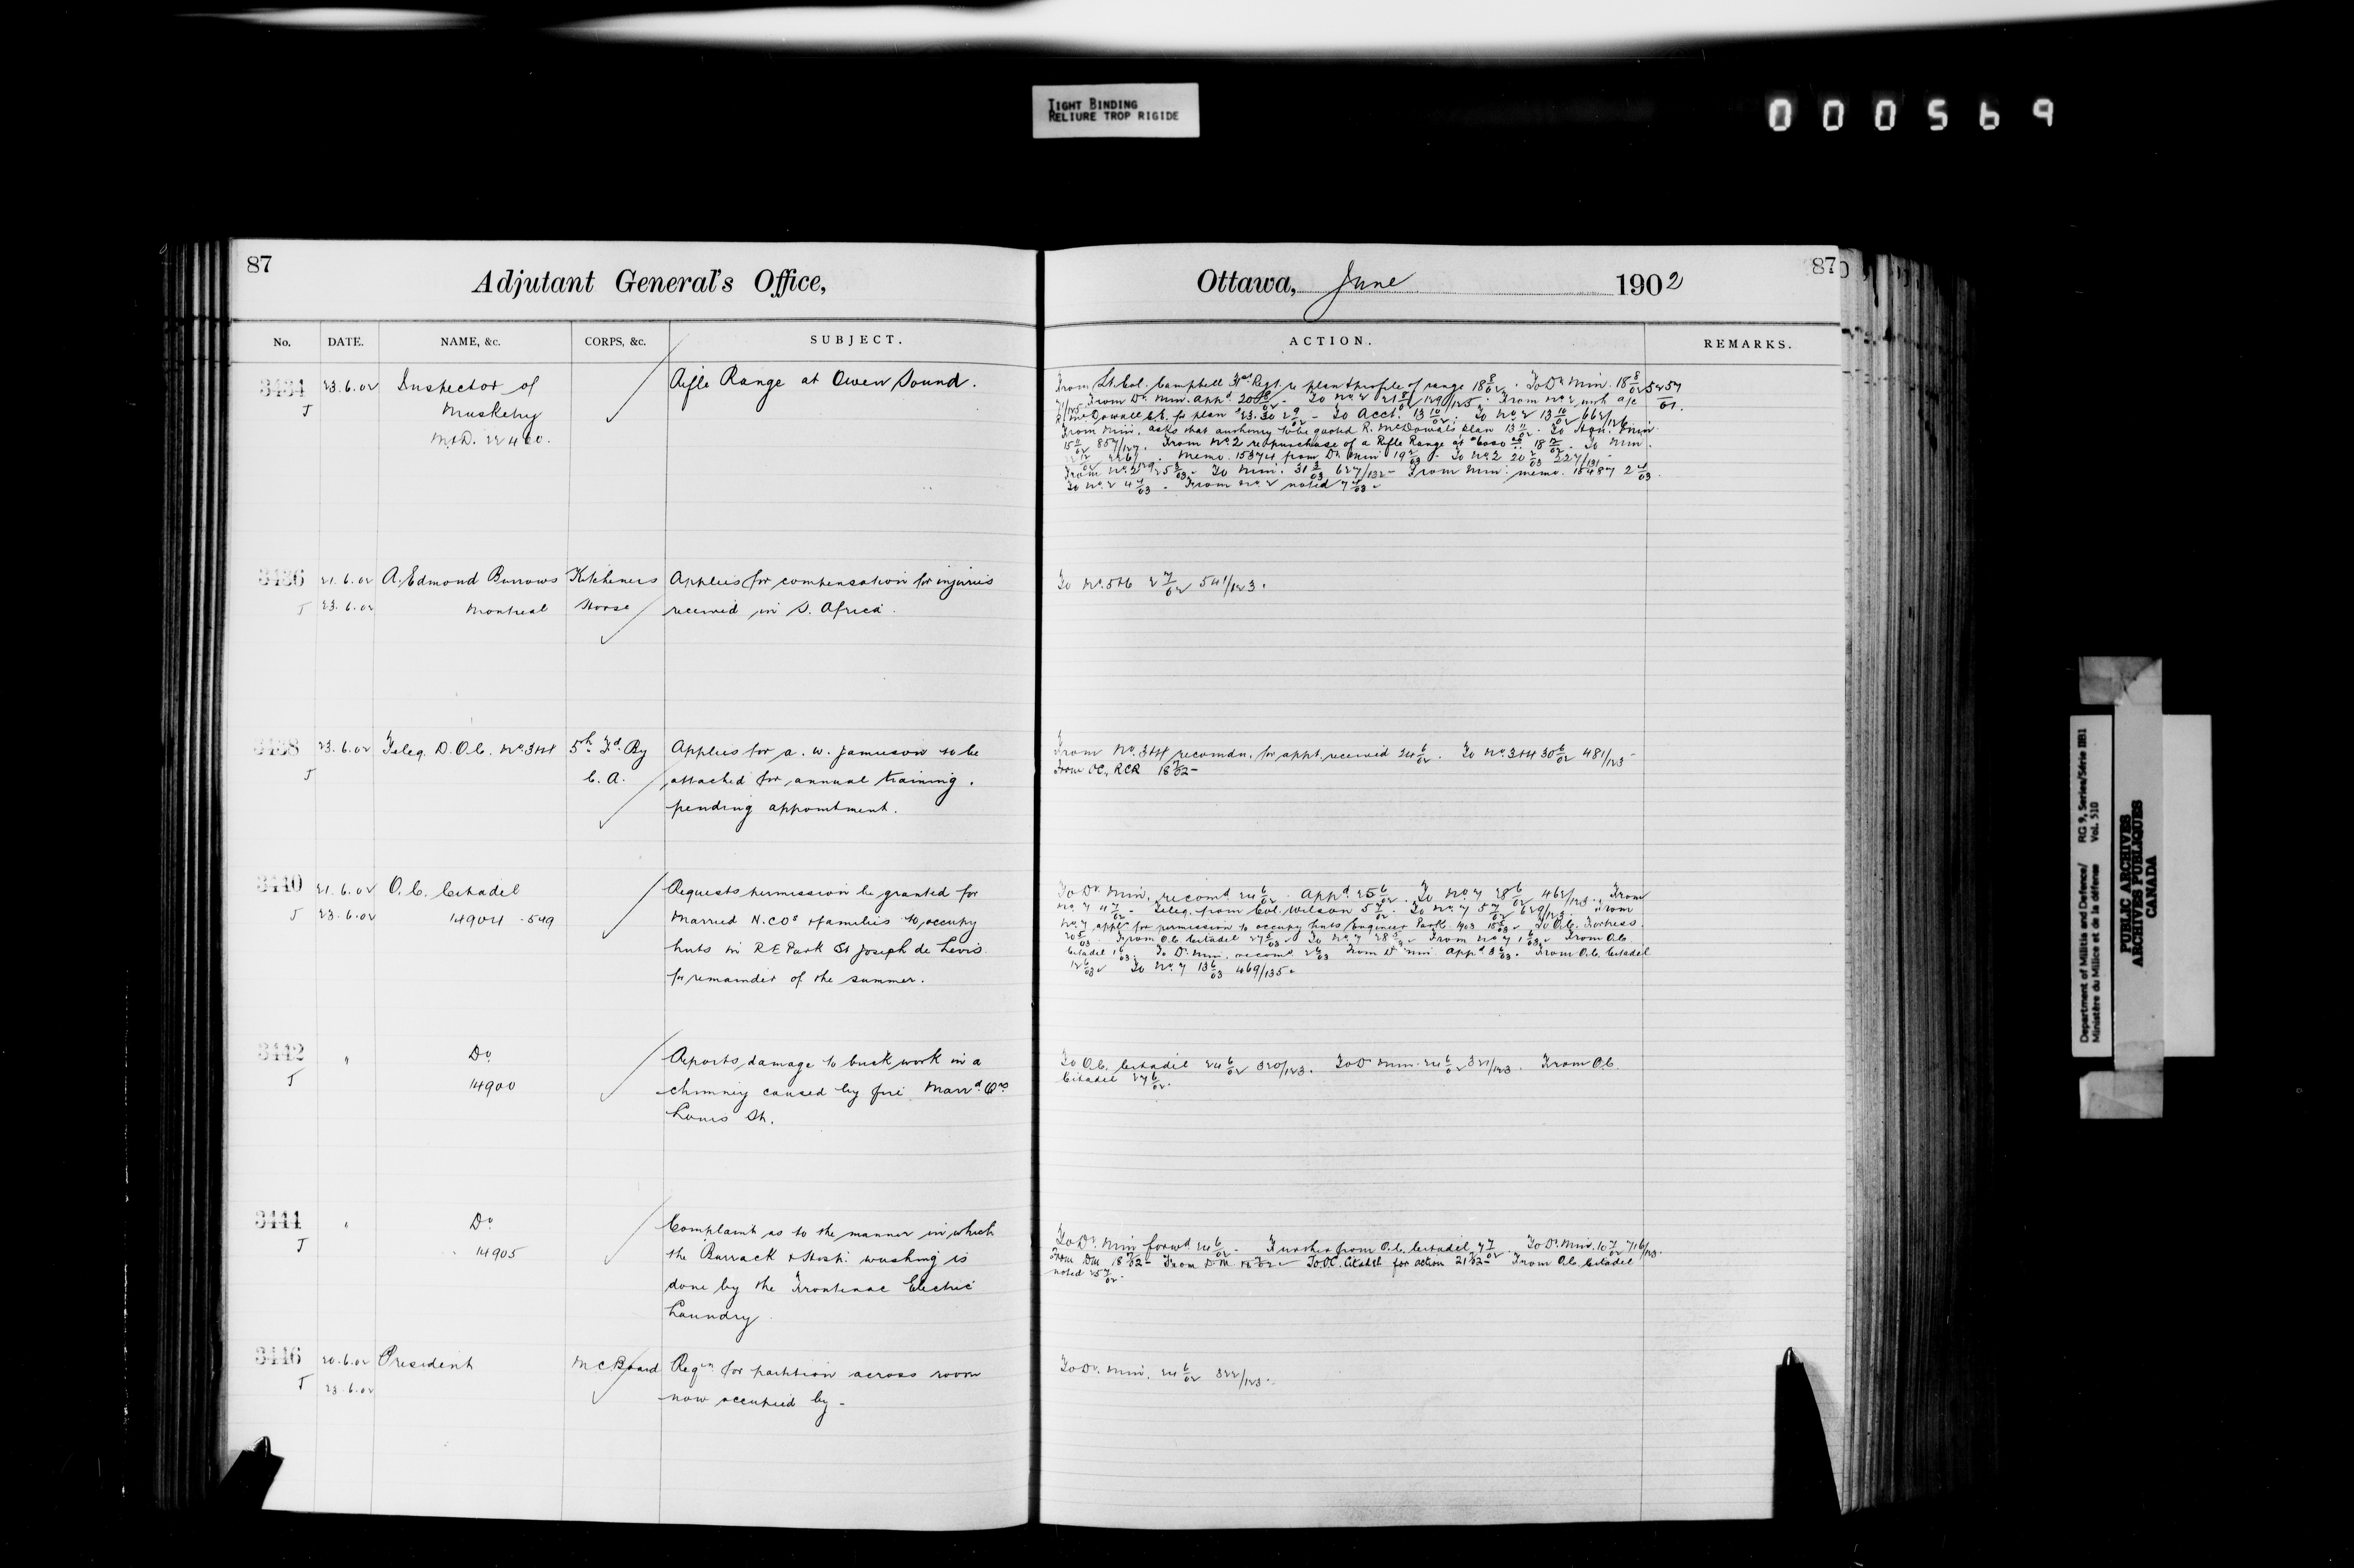 TIGHT BINDING
RELIURE TROP RIGIDE
000569
87
Adjutant General's Office,
No. DATE. NAME, &c. CORPS, &c. SUBJECT.
3434 23.6.02 Inspector of Rifle Range at Owen Sound.
J Musketry
M&D. 22460.
3436 21.6.02 A. Edmond Burrows Kitcheners Applies for compensation for injuries
J 23.6.02 Montreal Horse received in S. Africa.
3438 23.6.02 Teleg. D.O.C. No. 3&4 5th Fd. By Applies for a. w. Jamieson to be
J C. A. attached for annual training.
pending appointment.
3440 21.6.02 O.C. Citadel Requests permission be granted for
J 23.6.02 14904 - 549 Married N.COs & families to occupy
huts in R E Park St Joseph de Levis
for remainder of the summer.
3442 " Do Reports damage to brick work in a
J 14900 chimney caused by fire Marrd. Qrs
Louis St.
3444 " Do Complaint as to the manner in which
J 14905 the Barrack & Hosp. washing is
done by the Frontenac Electric
Laundry.
3446 20.6.02 President M C Board Reqn for partition across room
J 23.6.02 now occupied by -
87
Ottawa, June 1902
ACTION. REMARKS.
From Lt. Col. Campbell 31st Regt. re plan & profile of range 18 8/02. To Dr. Min. 18 8/02 5257/01.
From Dr. Min. appd 20 8/02 - To No. 2 21 8/02 129/125. From No. 2
R. McDowall for plan 23.30 29 9/02 - To Acct. 13 10/02. To No. 2 13 10/02 662/126
From Min. asks that authority to be quoted R. McDowall's plan 13 11/02. To Hon. Min
15 11/02 857/127. From No. 2 re purchase of a Rifle Range at 18 12/02. To Min.
Memo. 15374 from Dr. Min 19 2/03. To No. 2 20 2/03 227/131
From No. 2 25 3/03. To Min. 31 3/03 627/132 - From Min. memo. 15487 2 4/03.
To No. 2 4 4/03. From No. 2 noted 7 4/03.
To No. 5&6 2 7/02 541/123.
From No. 3&4 recomdn. for appt. received 24 6/02. To No. 3&4 30 6/02 481/123
From OC, RCR 18 7/02 -
To Dr. Min, recomd 24 6/02. Appd 25 6/02. To No. 7 28 6/02 462/123. From
No. 7 4 7/02 - Teleg. from Col. Wilson 5 7/02. To No. 7 5 7/02 629/123. From
No. 7 appl. for permission to occupy huts Engineer Park 1903 15 5/03. To O.C. Fortress
20 5/03. From O.C. Citadel 27 5/03. To No. 7 28 5/03. From No. 7 1 6/03. From O.C.
Citadel 1 6/03. To Dr. Min. recomd 2 6/03 From Dr Min. Appd 3 6/03. From O.C. Citadel
12 6/03 To No. 7 13 6/03 469/135.
To O.C. Citadel 24 6/02 320/123. To Dr Min. 24 6/02 321/123. From O.C.
Citadel 27 6/02.
To Dr. Min forwd 24 6/02 - Further from O.C. Citadel 7 7/02. To Dr. Min. 10 7/02 716/123.
From DM 18 7/02 - From D.M. 7/02 To O.C. Citadel for action 21 7/02 - From O.C. Citadel
noted 25 7/02.
To Dr. Min. 24 6/02 322/123.
Department of Militia and Defence/ RG 9, Series/Série IIB1
Ministère du Milice et de la défense Vol. 510
PUBLIC ARCHIVES
ARCHIVES PUBLIQUES
CANADA